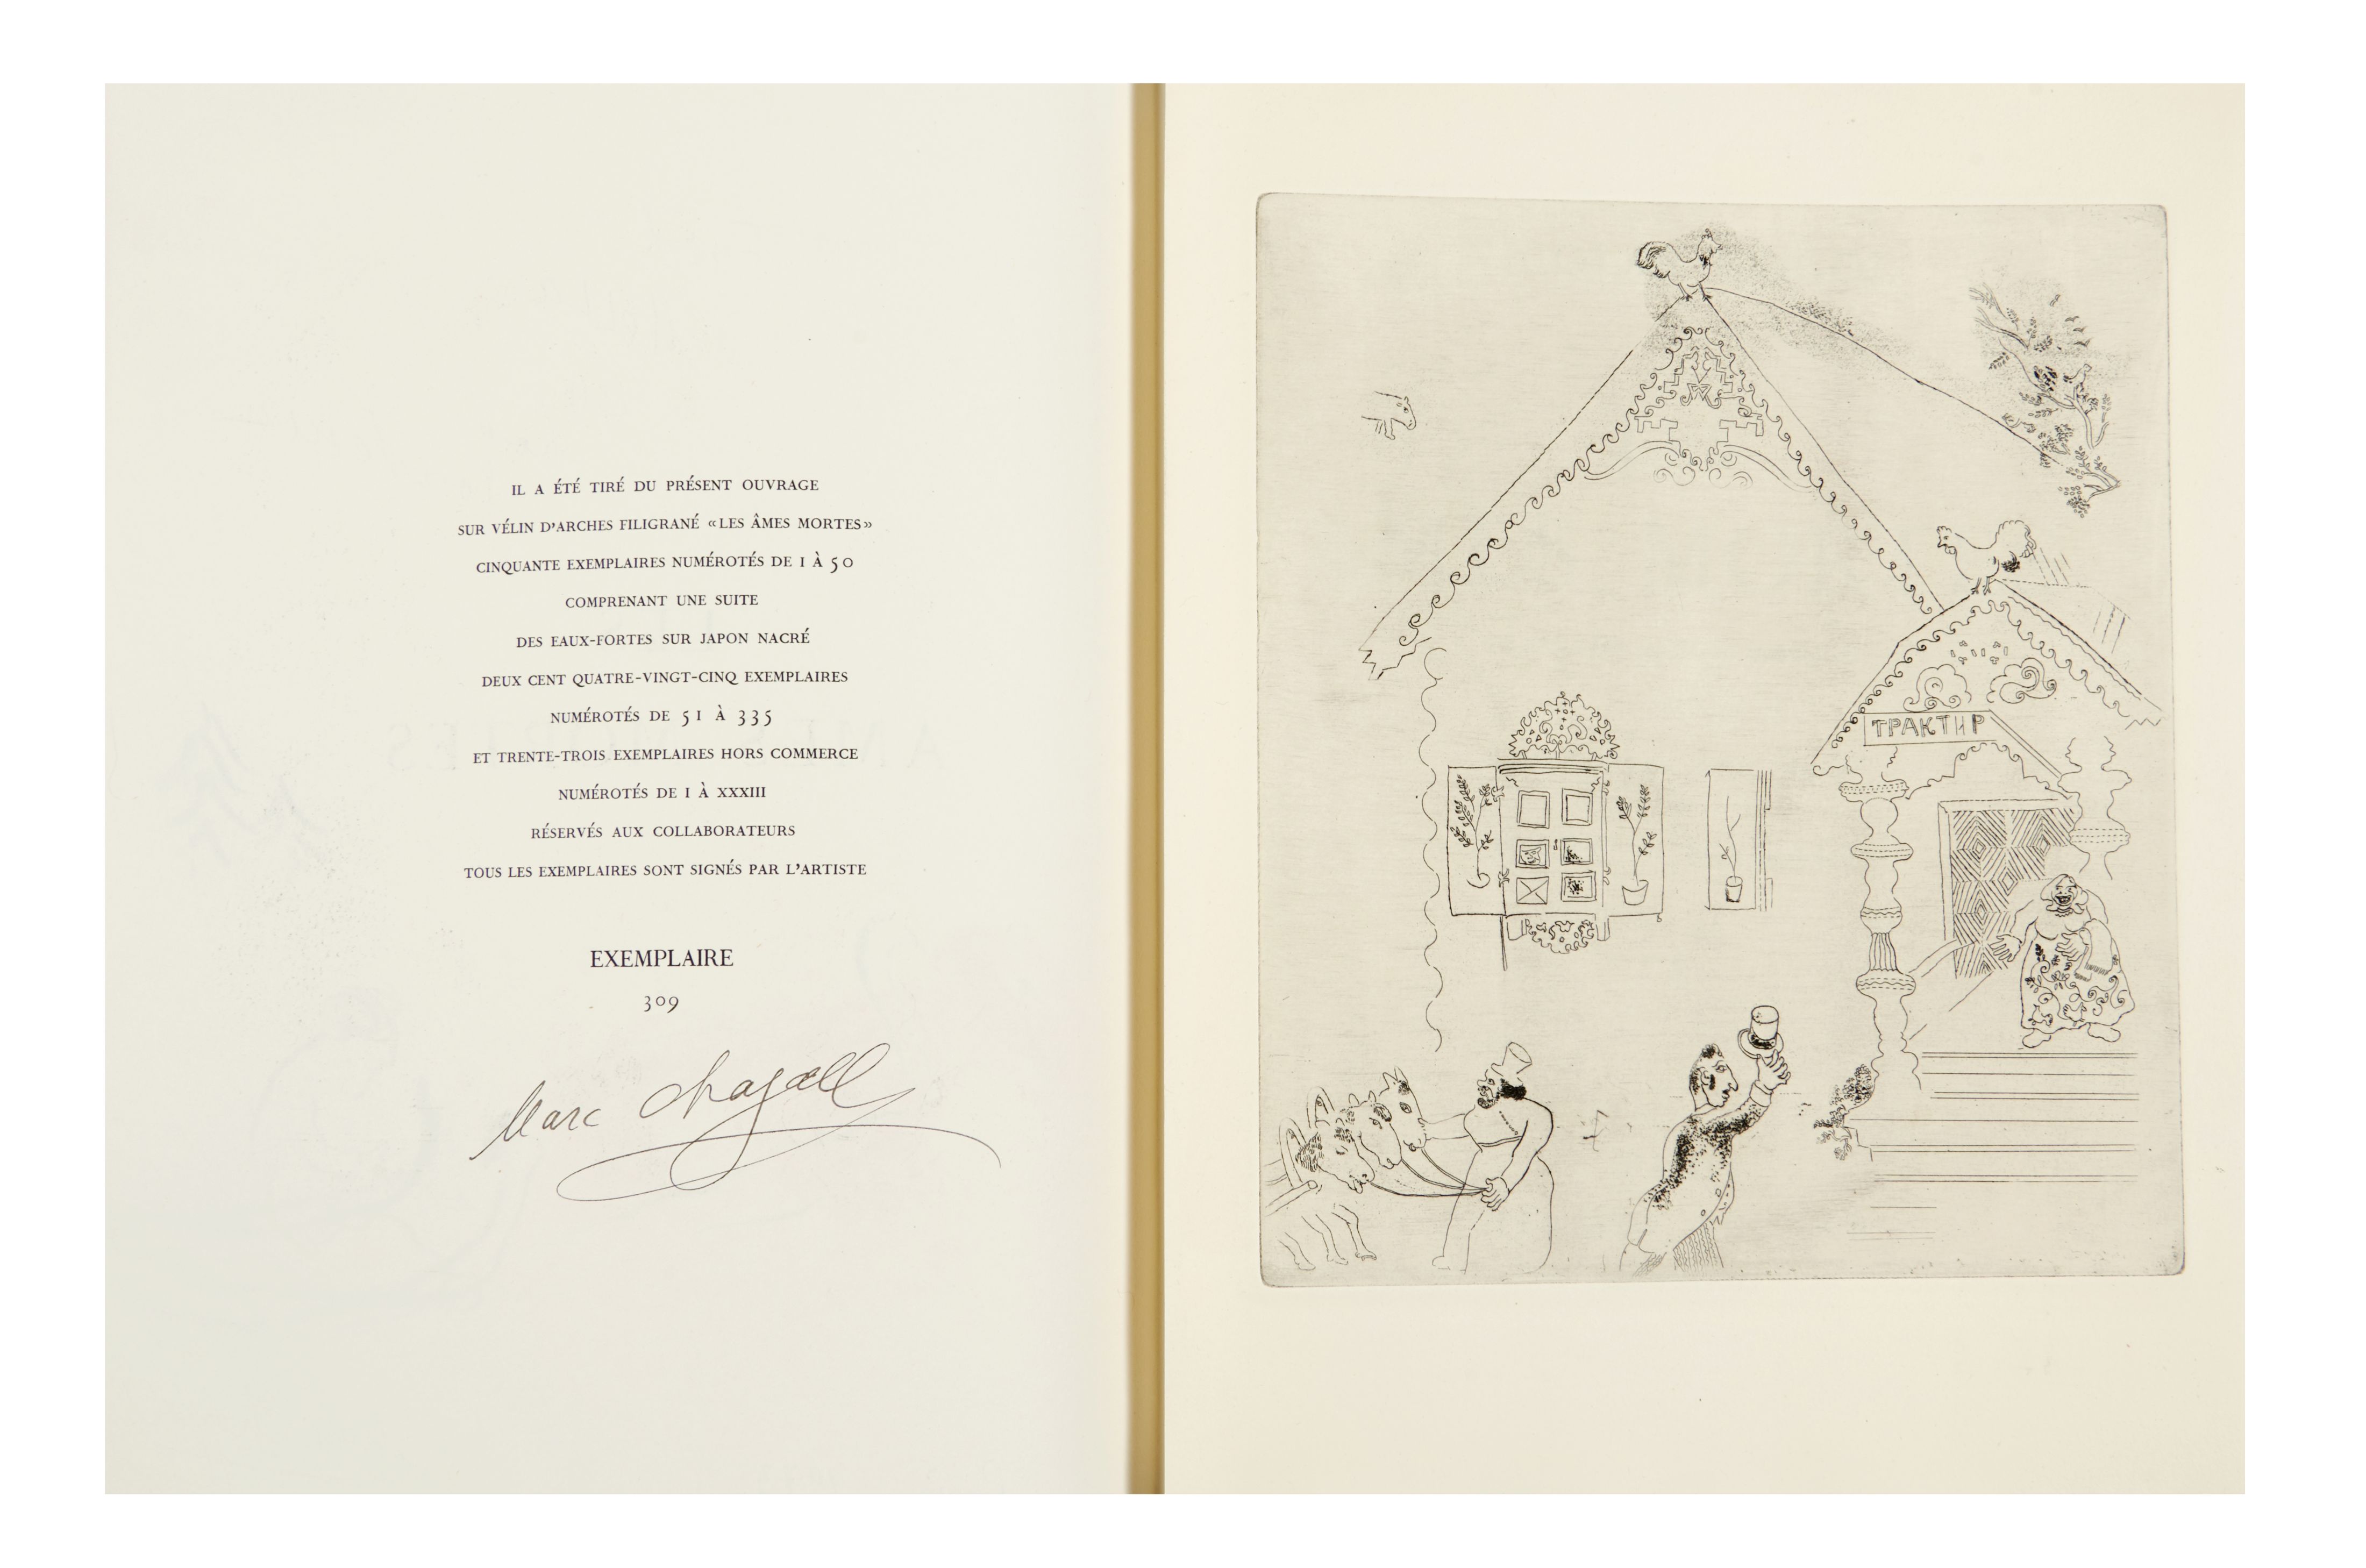 IL A ÉTÉ TIRÉ DU PRÉSENT OUVRAGE
SUR VÉLIN D'ARCHES FILIGRANÉ «LES ÂMES MORTES»
CINQUANTE EXEMPLAIRES NUMÉROTÉS DE 1 À 50
COMPRENANT UNE SUITE
DES EAUX-FORTES SUR JAPON NACRÉ
DEUX CENT QUATRE-VINGT-CINQ EXEMPLAIRES
NUMÉROTÉS DE 51 À 335
ET TRENTE-TROIS EXEMPLAIRES HORS COMMERCE
NUMÉROTÉS DE I À XXXIII
RÉSERVÉS AUX COLLABORATEURS
TOUS LES EXEMPLAIRES SONT SIGNÉS PAR L'ARTISTE
EXEMPLAIRE
309
Marc Chagall
ТРАКТИР